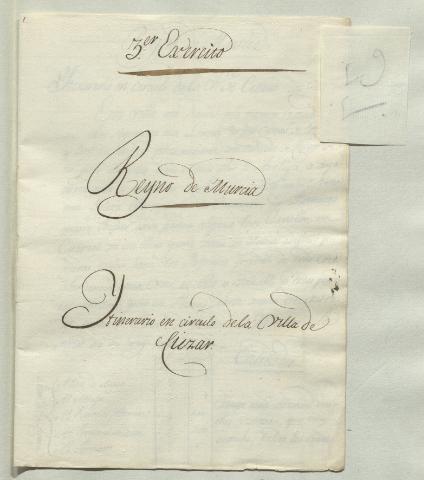 3.er Exercito
Reyno de Murcia
Ytinerario en circulo dela Villa de
Ciezar.